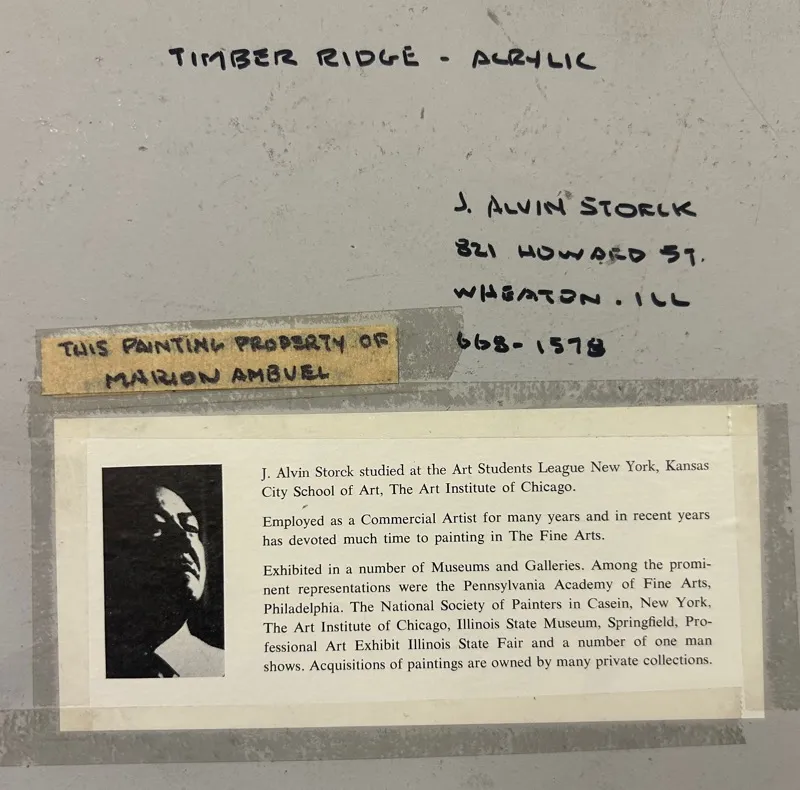 TIMBER RIDGE - ACRYLIC
J. ALVIN STORCK
821 HOWARD ST.
WHEATON. ILL
668-1578
THIS PAINTING PROPERTY OF
MARION AMBUEL
J. Alvin Storck studied at the Art Students League New York, Kansas
City School of Art, The Art Institute of Chicago.
Employed as a Commercial Artist for many years and in recent years
has devoted much time to painting in The Fine Arts.
Exhibited in a number of Museums and Galleries. Among the promi-
nent representations were the Pennsylvania Academy of Fine Arts,
Philadelphia. The National Society of Painters in Casein, New York,
The Art Institute of Chicago, Illinois State Museum, Springfield, Pro-
fessional Art Exhibit Illinois State Fair and a number of one man
shows. Acquisitions of paintings are owned by many private collections.